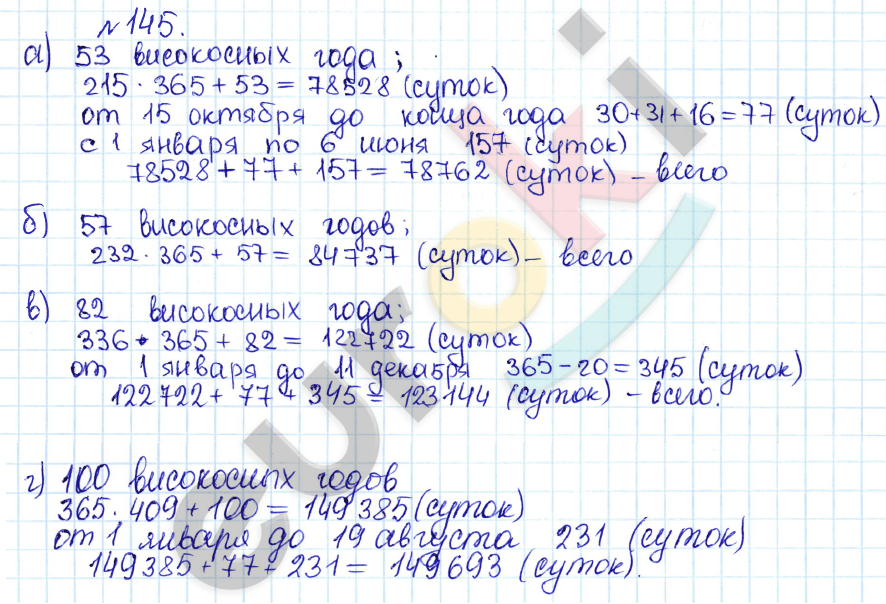 №145.
а) 53 високосных года;
215·365+53=78528 (суток)
от 15 октября до конца года 30+31+16=77 (суток)
с 1 января по 6 июня 157 (суток)
78528+77+157=78762 (суток) – всего
б) 57 високосных годов;
232·365+57=84737 (суток) – всего
в) 82 високосных года;
336·365+82=122722 (суток)
от 1 января до 11 декабря 365-20=345 (суток)
122722+77+345=123144 (суток) – всего.
г) 100 високосных годов
365·409+100=149385 (суток)
от 1 января до 19 августа 231 (суток)
149385+77+231=149693 (суток).
euroki